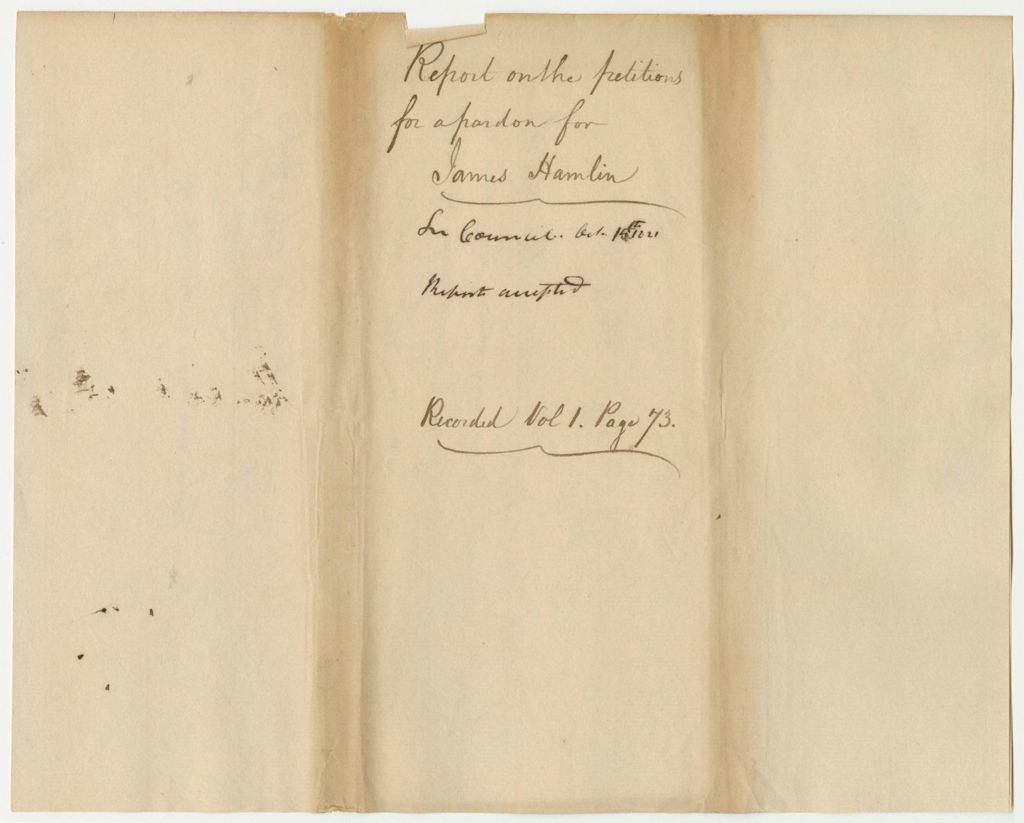 Report on the petitions
for a pardon for
James Hamlin
In Council. Oct. 
Report accepted
Recorded Vol 1. Page 73.